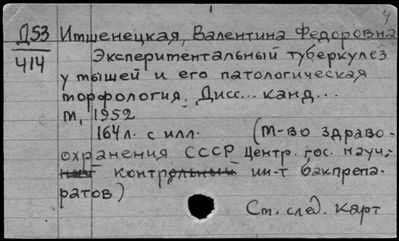 4
Д53 Итшенецкая, Валентина Федоровна
414 Экспериментальный туберкулез
у мышей и его патологическая
морфология. Дисс... канд...
М, 1952
164 л. с илл. (М-во здраво-
охранения СССР Центр. гос. науч.
контрольный ин-т бакпрепа-
ратов)
См. след. карт